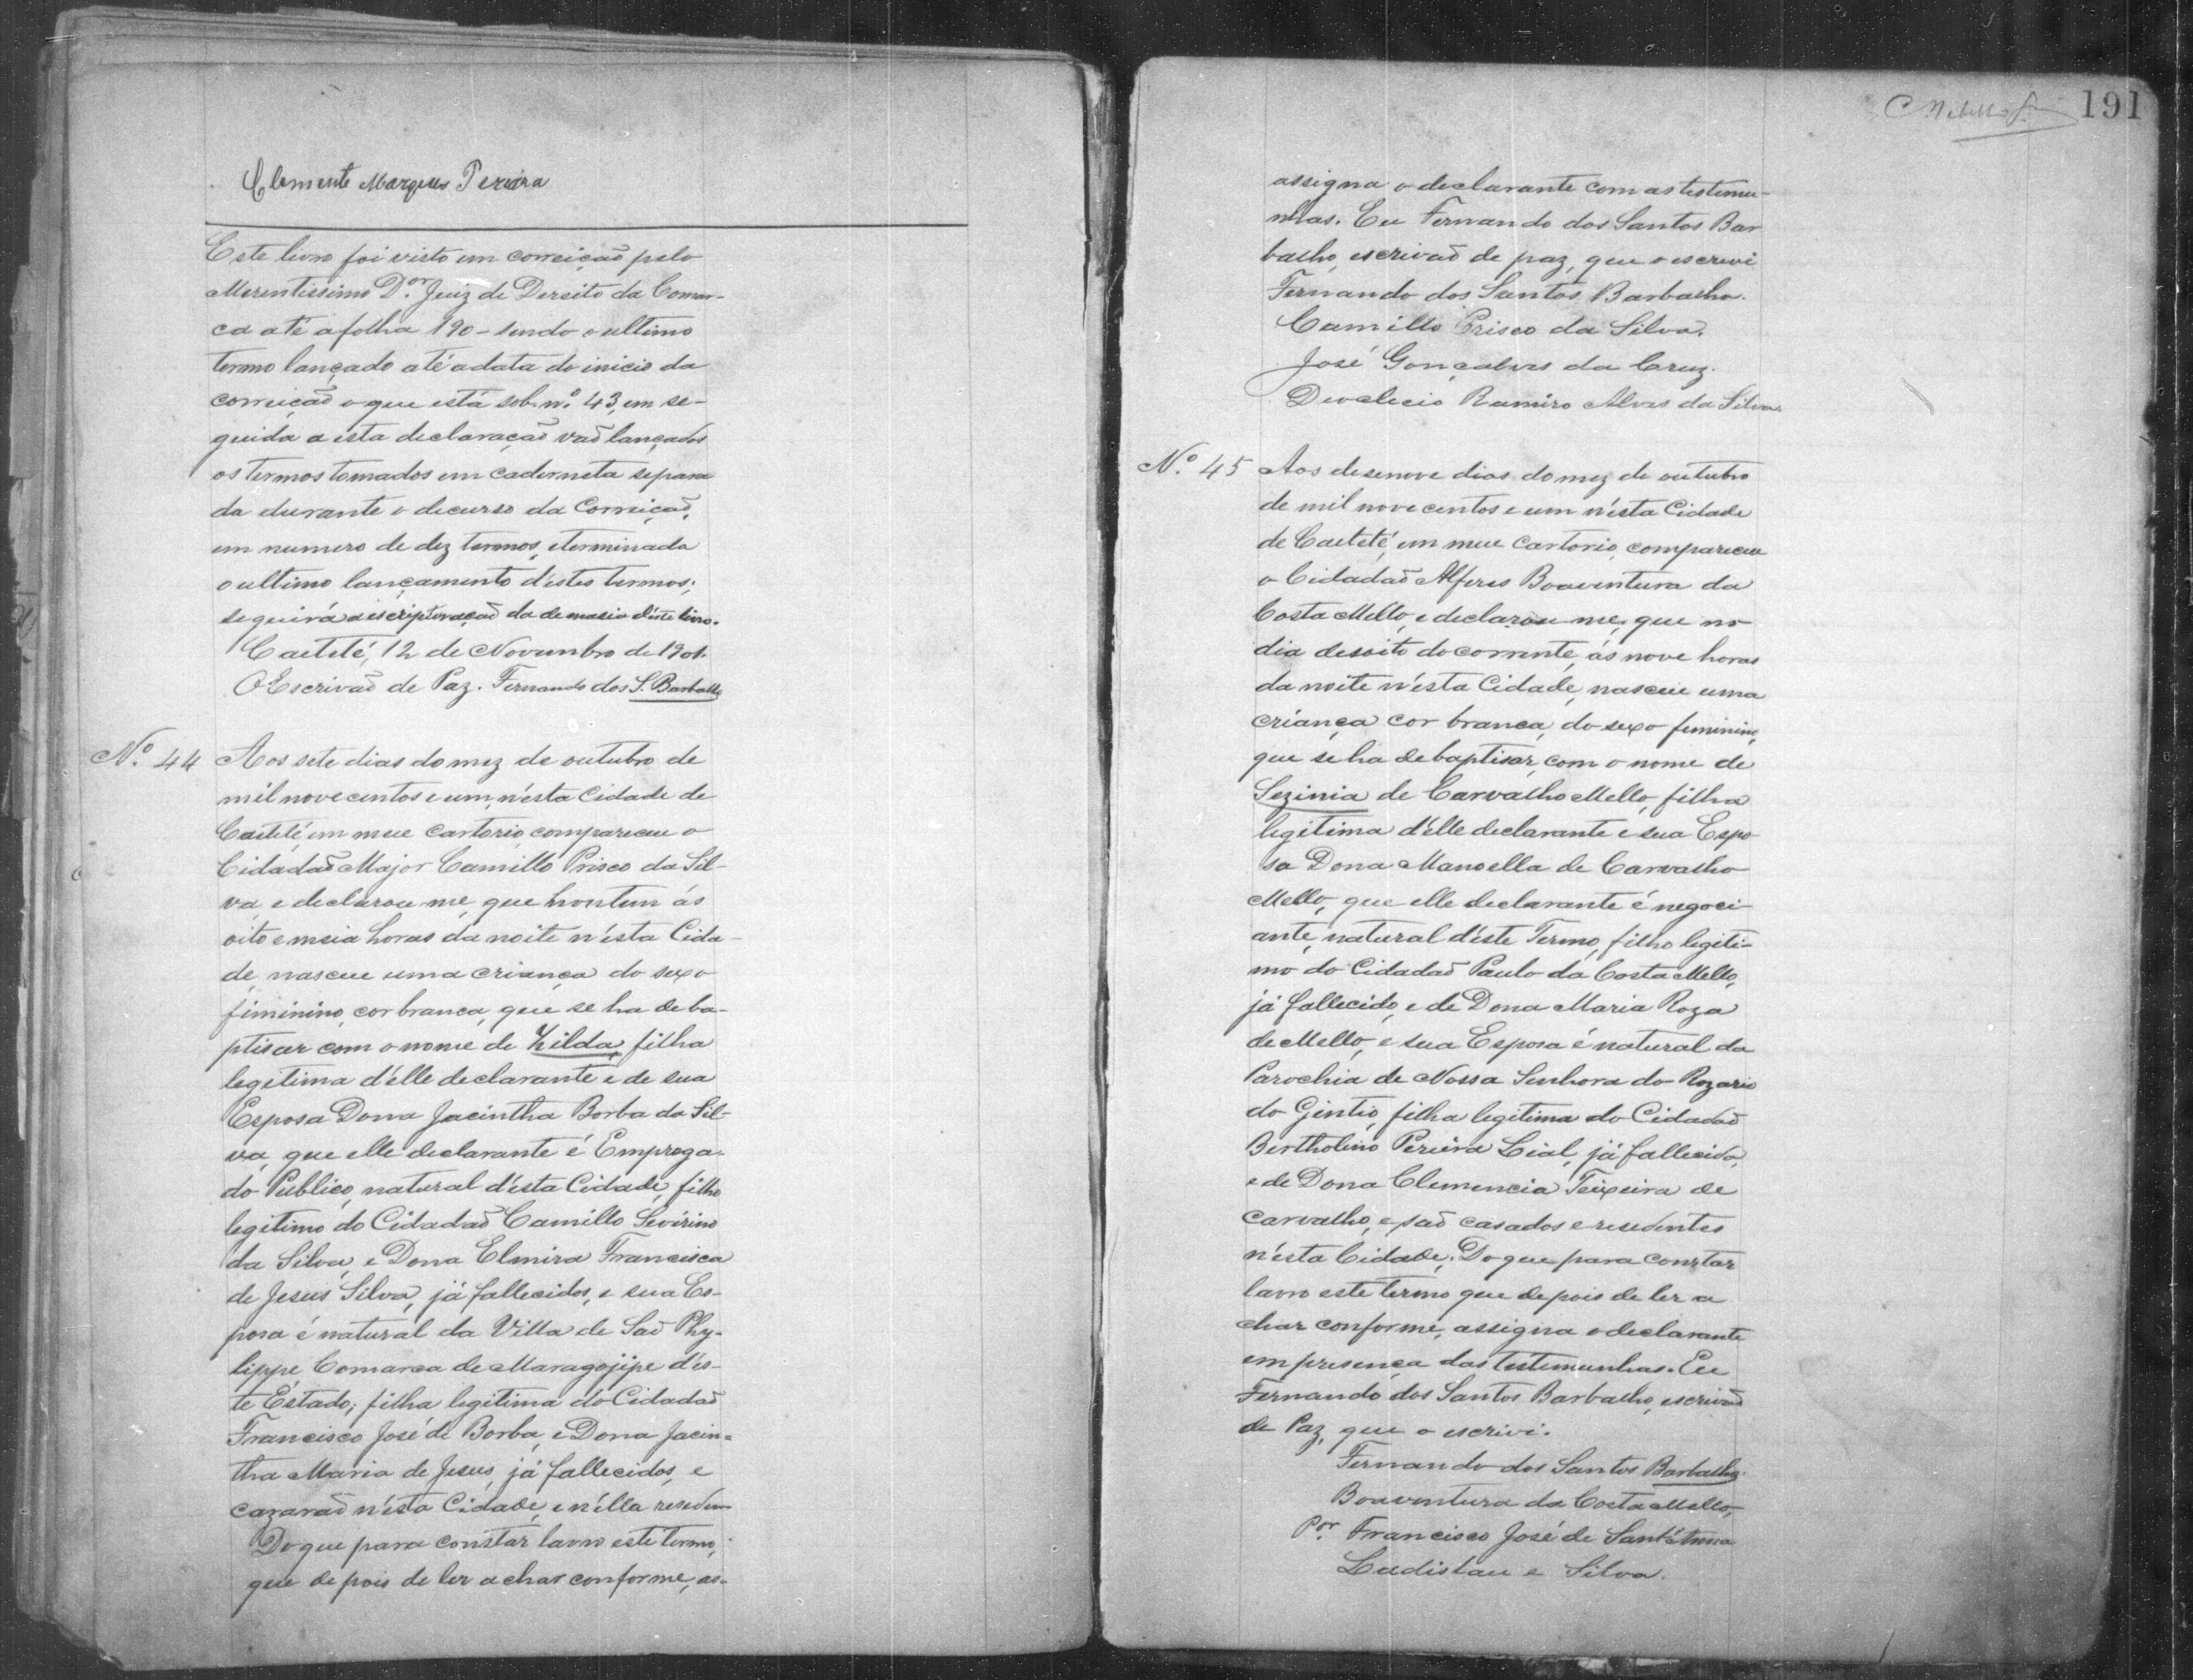 Clemente Marques Pereira
Este livro foi visto em correiçaõ pelo
Merentissimo D.or Juiz de Dereito da Comar-
ca até a folha 190 - sendo o ultimo
termo lançado até a data do inicio da
correiçaõ o que está sob. n.o 43, em se-
guida a esta declaraçaõ vaõ lançados
os termos tomados em caderneta separa
da durante o decurso da Correiçaõ,
em numero de dez termos, e terminada
o ultimo lançamento d'estes termos;
seguirá a escripturaçaõ da demasia d'este livro.
Caeteté, 12 de Novembro de 1901.
O Escrivaõ de Paz. Fernando dos S. Barbalho
N.o 44 Aos sete dias do mez de outubro de
mil nove centos e um, n'esta Cidade de
Caeteté, em meu Cartorio, compareceu o
Cidadaõ Major Camillo Prisco da Sil-
va, e declarou me, que hontem ás
oito e meia horas da noite n'esta Cida-
de, nasceu uma criança do sexo
fiminino, cor branca, que se ha de ba-
ptisar com o nome de Zilda, filha
legitima d'elle declarante e de sua
Esposa Dona Jacintha Borba da Sil-
va, que elle declarante é Emprega-
do Publico, natural d'esta Cidade, filho
legitimo do Cidadaõ Camillo Sevirino
da Silva, e Dona Elmira Francisca
de Jesus Silva, já fallecidos, e sua Es-
posa é natural da Villa de Saõ Phy-
lippe, Comarca de Maragojipe d'es-
te Estado; filha legitima do Cidadaõ
Francisco José de Borba, e Dona Jacin=
tha Maria de Jesus, já fallecidos, e
cazaraõ n'esta Cidade, e n'élla resedem
Do que para constar lavro este termo,
que depois de ler achar conforme, as-
191
assigna o declarante com as testemu-
nhas. Eu Fernando dos Santos Bar
balho, escrivaõ de paz, que o escrevi
Fernando dos Santos Barbalho.
Camillo Prisco da Silva.
José Gonçalves da Cruz.
Ramiro Alves da Silva.
N.o 45 Aos desenove dias do mez de outubro
de mil nove centos e um n'ésta Cidade
de Caeteté, em meu Cartorio, compareceu
o Cidadaõ Alferes Boaventura da
Costa Mello, e declarou-me, que no
dia desoito do corrente, ás nove horas
da noite n'esta Cidade, nasceu uma
criança cor branca, do sexo feminino,
que se ha de baptisar, com o nome de
Sezinia de Carvalho Mello, filha
legitima d'elle declarante e sua Espo
sa Dona Manoella de Carvalho
Mello, que elle declarante é negoci-
ante, natural d'éste Termo, filho legiti-
mo do Cidadaõ Paulo da Costa Mello,
já fallecido, e de Dona Maria Roza
de Mello, e sua Esposa é natural da
Parochia de Nossa Senhora do Rozario
do Gentio, filha legitima do Cidadaõ
Bertholino Pereira Lial, já fallecido,
e de Dona Clemencia Teixeira de
Carvalho, e saõ casados e resedentes
n'ésta Cidade. Do que para constar
lavro este termo que depois de ler a
char conforme, assigna o declarante
em presença das testemunhas. Eu
Fernando dos Santos Barbalho, escrivaõ
de Paz, que o escrivi.
Fernando dos Santos Barbalho.
Boaventura da Costa Mello,
P.or Francisco José de Sant'Anna
Ladislau e Silva.